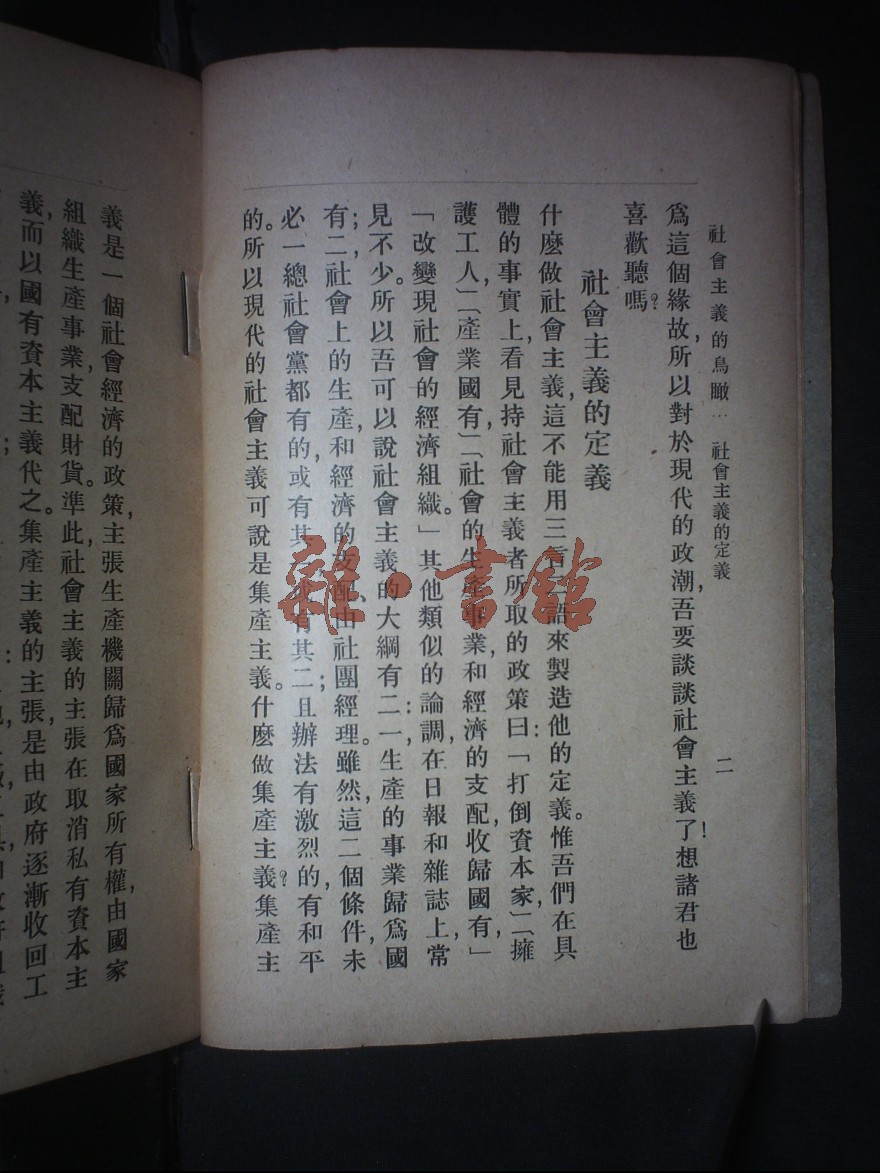 社會主義的鳥瞰… 社會主義的定義
二
爲這個緣故,所以對於現代的政潮,吾要談談社會主義了!想諸君也
喜歡聽嗎?
社會主義的定義
什麼做社會主義,這不能用三言 語來製造他的定義。惟吾們在具
體的事實上,看見持社會主義者所取的政策曰:「打倒資本家」,「擁
護工人」,「產業國有」,「社會的生產事業和經濟的支配,收歸國有,」
「改變現社會的經濟組織。」其他類似的論調,在日報和雜誌上,常
見不少。所以吾可以說社會主義的大綱有二:一,生產的事業歸爲國
有;二,社會上的生產,和經濟的支配,由社團經理。雖然,這二個條件,未
必一總社會黨都有的,或有其 或有其二;且辦法有激烈的,有和平
的。所以現代的社會主義可說是集產主義。什麼做集產主義?集產主
義是一個社會經濟的政策,主張生產機關歸爲國家所有權,由國家
組織生產事業,支配財貨。準此,社會主義的主張在取消私有資本主
義,而以國有資本主義代之。集產主義的主張,是由政府逐漸收回工
雜·書館